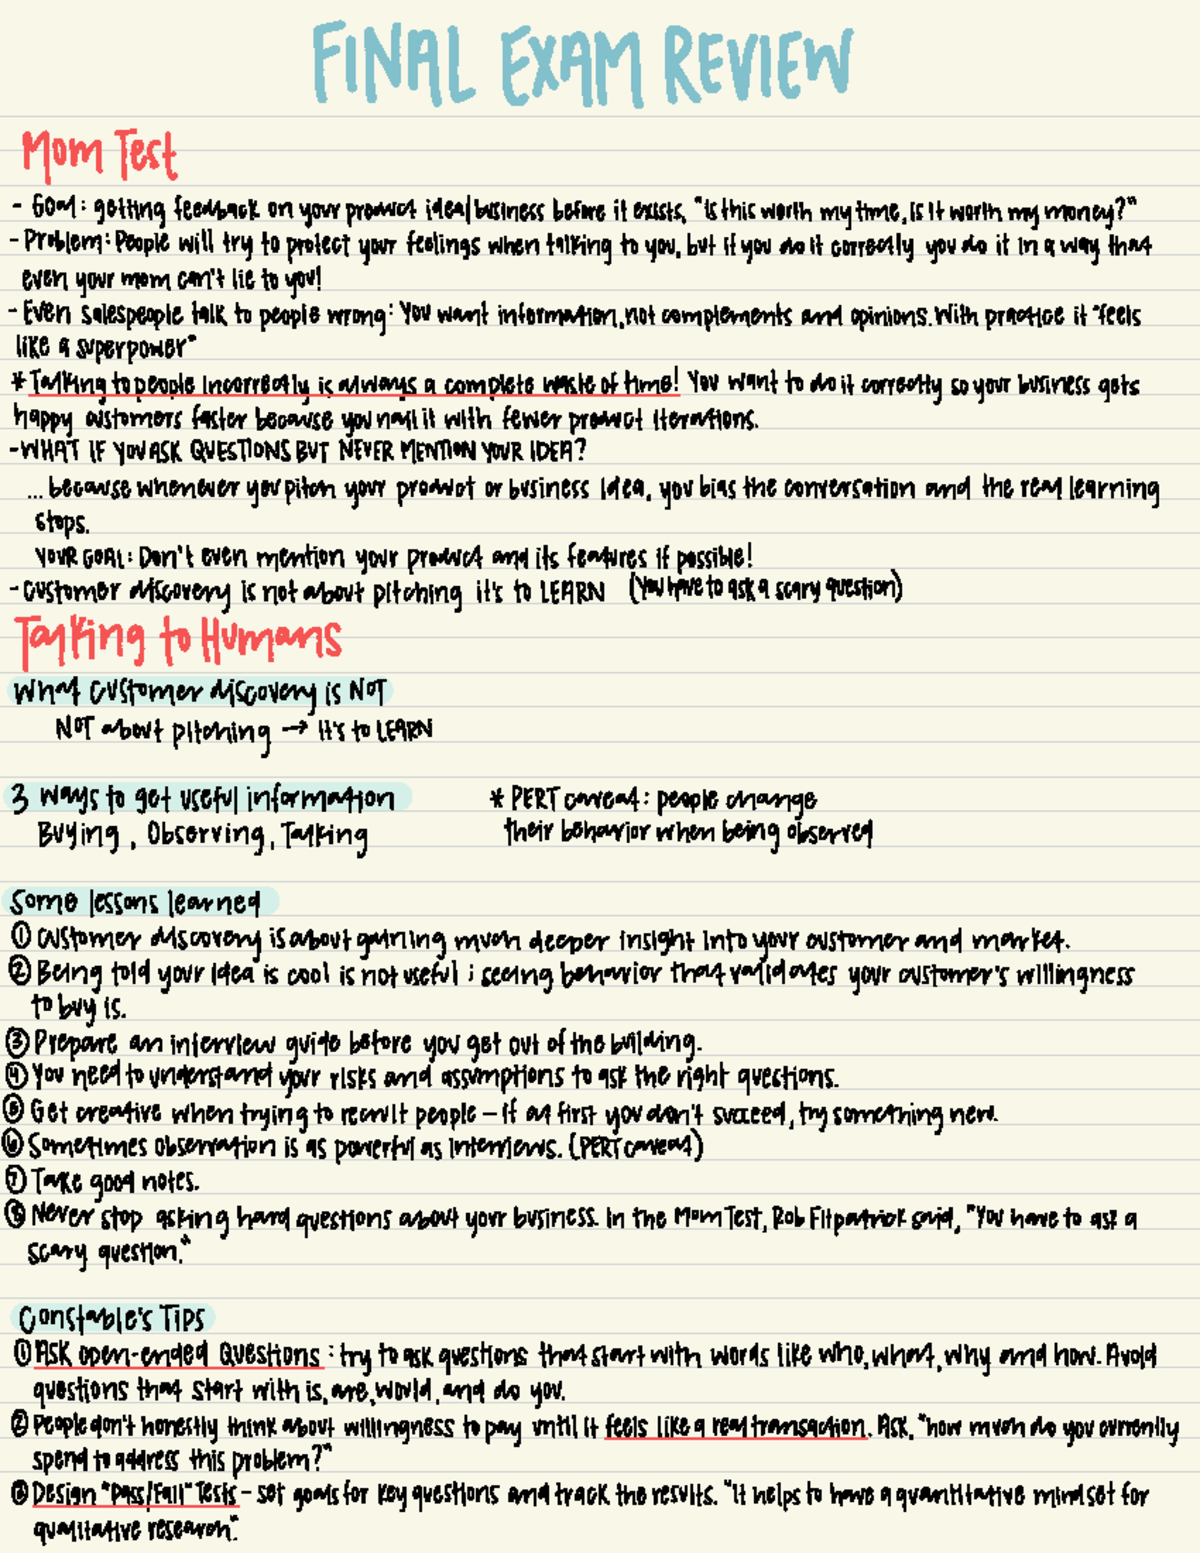 FINAL EXAM REVIEW
Mom Test
- Goal: getting feedback on your product idea/business before it exists, "Is this worth my time, is it worth my money?"
- Problem: People will try to protect your feelings when talking to you, but if you do it correctly you do it in a way that
even your mom can't lie to you!
- Even salespeople talk to people wrong: You want information, not complements and opinions. With practice it "feels
like a superpower"
* Talking to people incorrectly is always a complete waste of time! You want to do it correctly so your business gets
happy customers faster because you nail it with fewer product iterations.
- WHAT IF YOU ASK QUESTIONS BUT NEVER MENTION YOUR IDEA?
... because whenever you pitch your product or business idea, you bias the conversation and the real learning
stops.
YOUR GOAL: Don't even mention your product and its features if possible!
- Customer discovery is not about pitching it's to LEARN (You have to ask a scary question)
Talking to Humans
What customer discovery is NOT
NOT about pitching → It's to LEARN
3 ways to get useful information
* PERT caveat: people change
Buying, Observing, Talking
their behavior when being observed
Some lessons learned
① Customer discovery is about gaining much deeper insight into your customer and market.
② Being told your idea is cool is not useful; seeing behavior that validates your customer's willingness
to buy is.
③ Prepare an interview guide before you get out of the building.
④ You need to understand your risks and assumptions to ask the right questions.
⑤ Get creative when trying to recruit people - if at first you don't succeed, try something new.
⑥ Sometimes observation is as powerful as interviews. (PERT caveat)
⑦ Take good notes.
⑧ Never stop asking hard questions about your business. In the Mom Test, Rob Fitpatrick said, "You have to ask a
scary question."
Constable's Tips
① Ask open-ended Questions: try to ask questions that start with words like who, what, why and how. Avoid
questions that start with is, are, would, and do you.
② People don't honestly think about willingness to pay until it feels like a real transaction. Ask, "how much do you currently
spend to address this problem?"
③ Design "Pass/Fail" Tests - set goals for key questions and track the results. "It helps to have a quantitative mindset for
qualitative research".